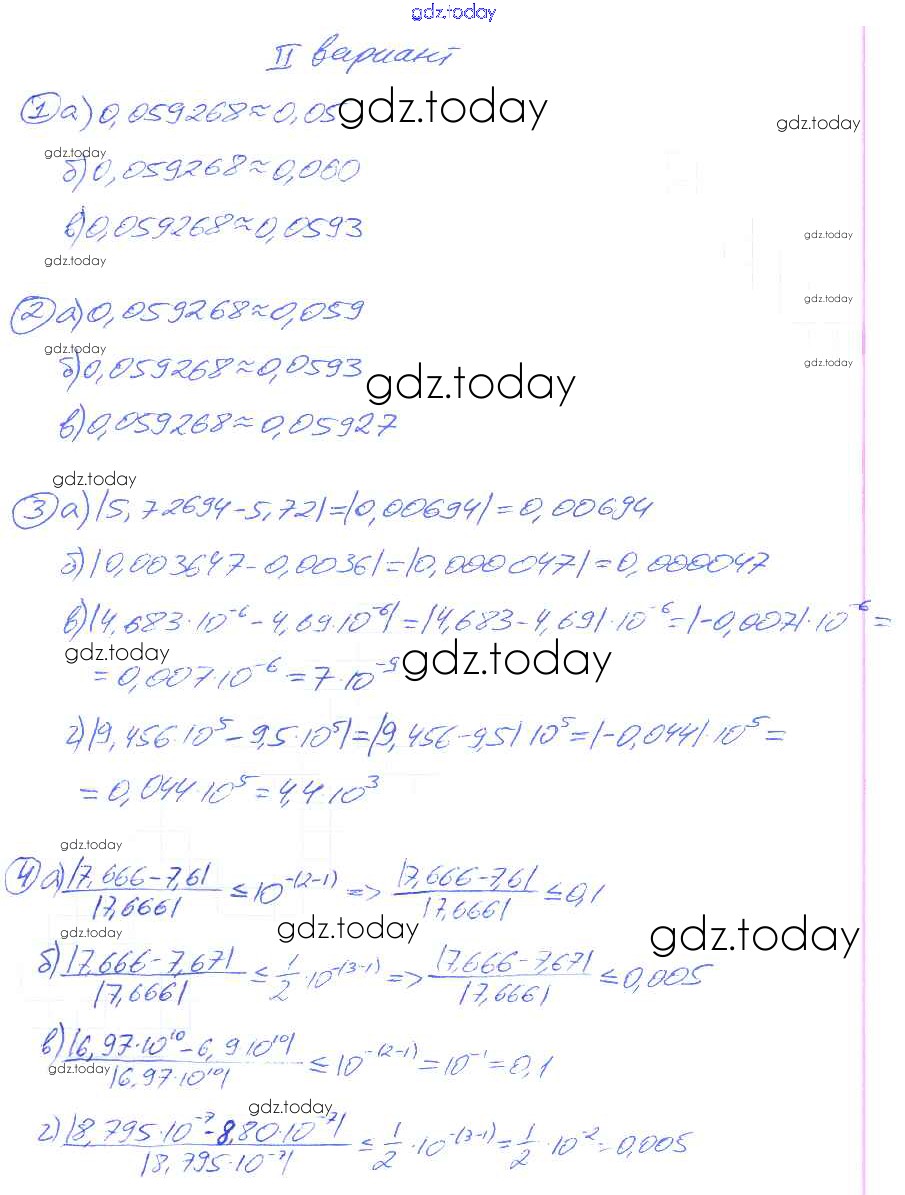 gdz.today
II вариант
① а) 0,059268≈0,05 gdz.today
gdz.today
gdz.today
б) 0,059268≈0,060
в) 0,059268≈0,0593
gdz.today
gdz.today
② а) 0,059268≈0,059
gdz.today
gdz.today
б) 0,059268≈0,0593
gdz.today
gdz.today
в) 0,059268≈0,05927
gdz.today
③ а) |5,72694-5,72|=|0,00694|=0,00694
б) |0,003647-0,0036|=|0,000047|=0,000047
в) |4,683·10⁻⁶-4,69·10⁻⁶|=|4,683-4,69|·10⁻⁶=|-0,007|·10⁻⁶=
gdz.today
gdz.today
=0,007·10⁻⁶=7·10⁻⁹
г) |9,456·10⁵-9,5·10⁵|=|9,456-9,5|10⁵=|-0,044|·10⁵=
=0,044·10⁵=4,4·10³
gdz.today
④ а) |7,666-7,6|/|7,666| ≤10^-(2-1) => |7,666-7,6|/|7,666| ≤0,1
gdz.today
gdz.today
gdz.today
б) |7,666-7,67|/|7,666| ≤1/2·10^-(3-1) => |7,666-7,67|/|7,666| ≤0,005
в) |6,97·10¹⁰-6,9·10¹⁰|/|6,97·10¹⁰| ≤10^-(2-1)=10⁻¹=0,1
gdz.today
gdz.today
г) |8,795·10⁻⁷-8,80·10⁻⁷|/|8,795·10⁻⁷| ≤1/2·10^-(3-1)=1/2·10⁻²=0,005